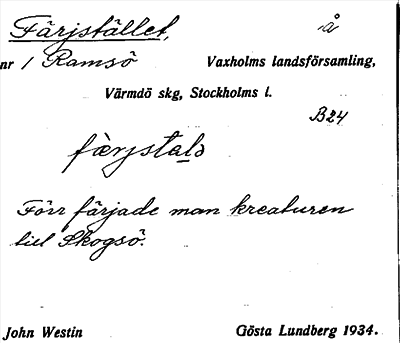 Färjstället, å
nr 1 Ramsö Vaxholms landsförsamling,
Värmdö skg, Stockholms l.
B24
Förr färjade man kreaturen
till Skogsö.
John Westin Gösta Lundberg 1934.